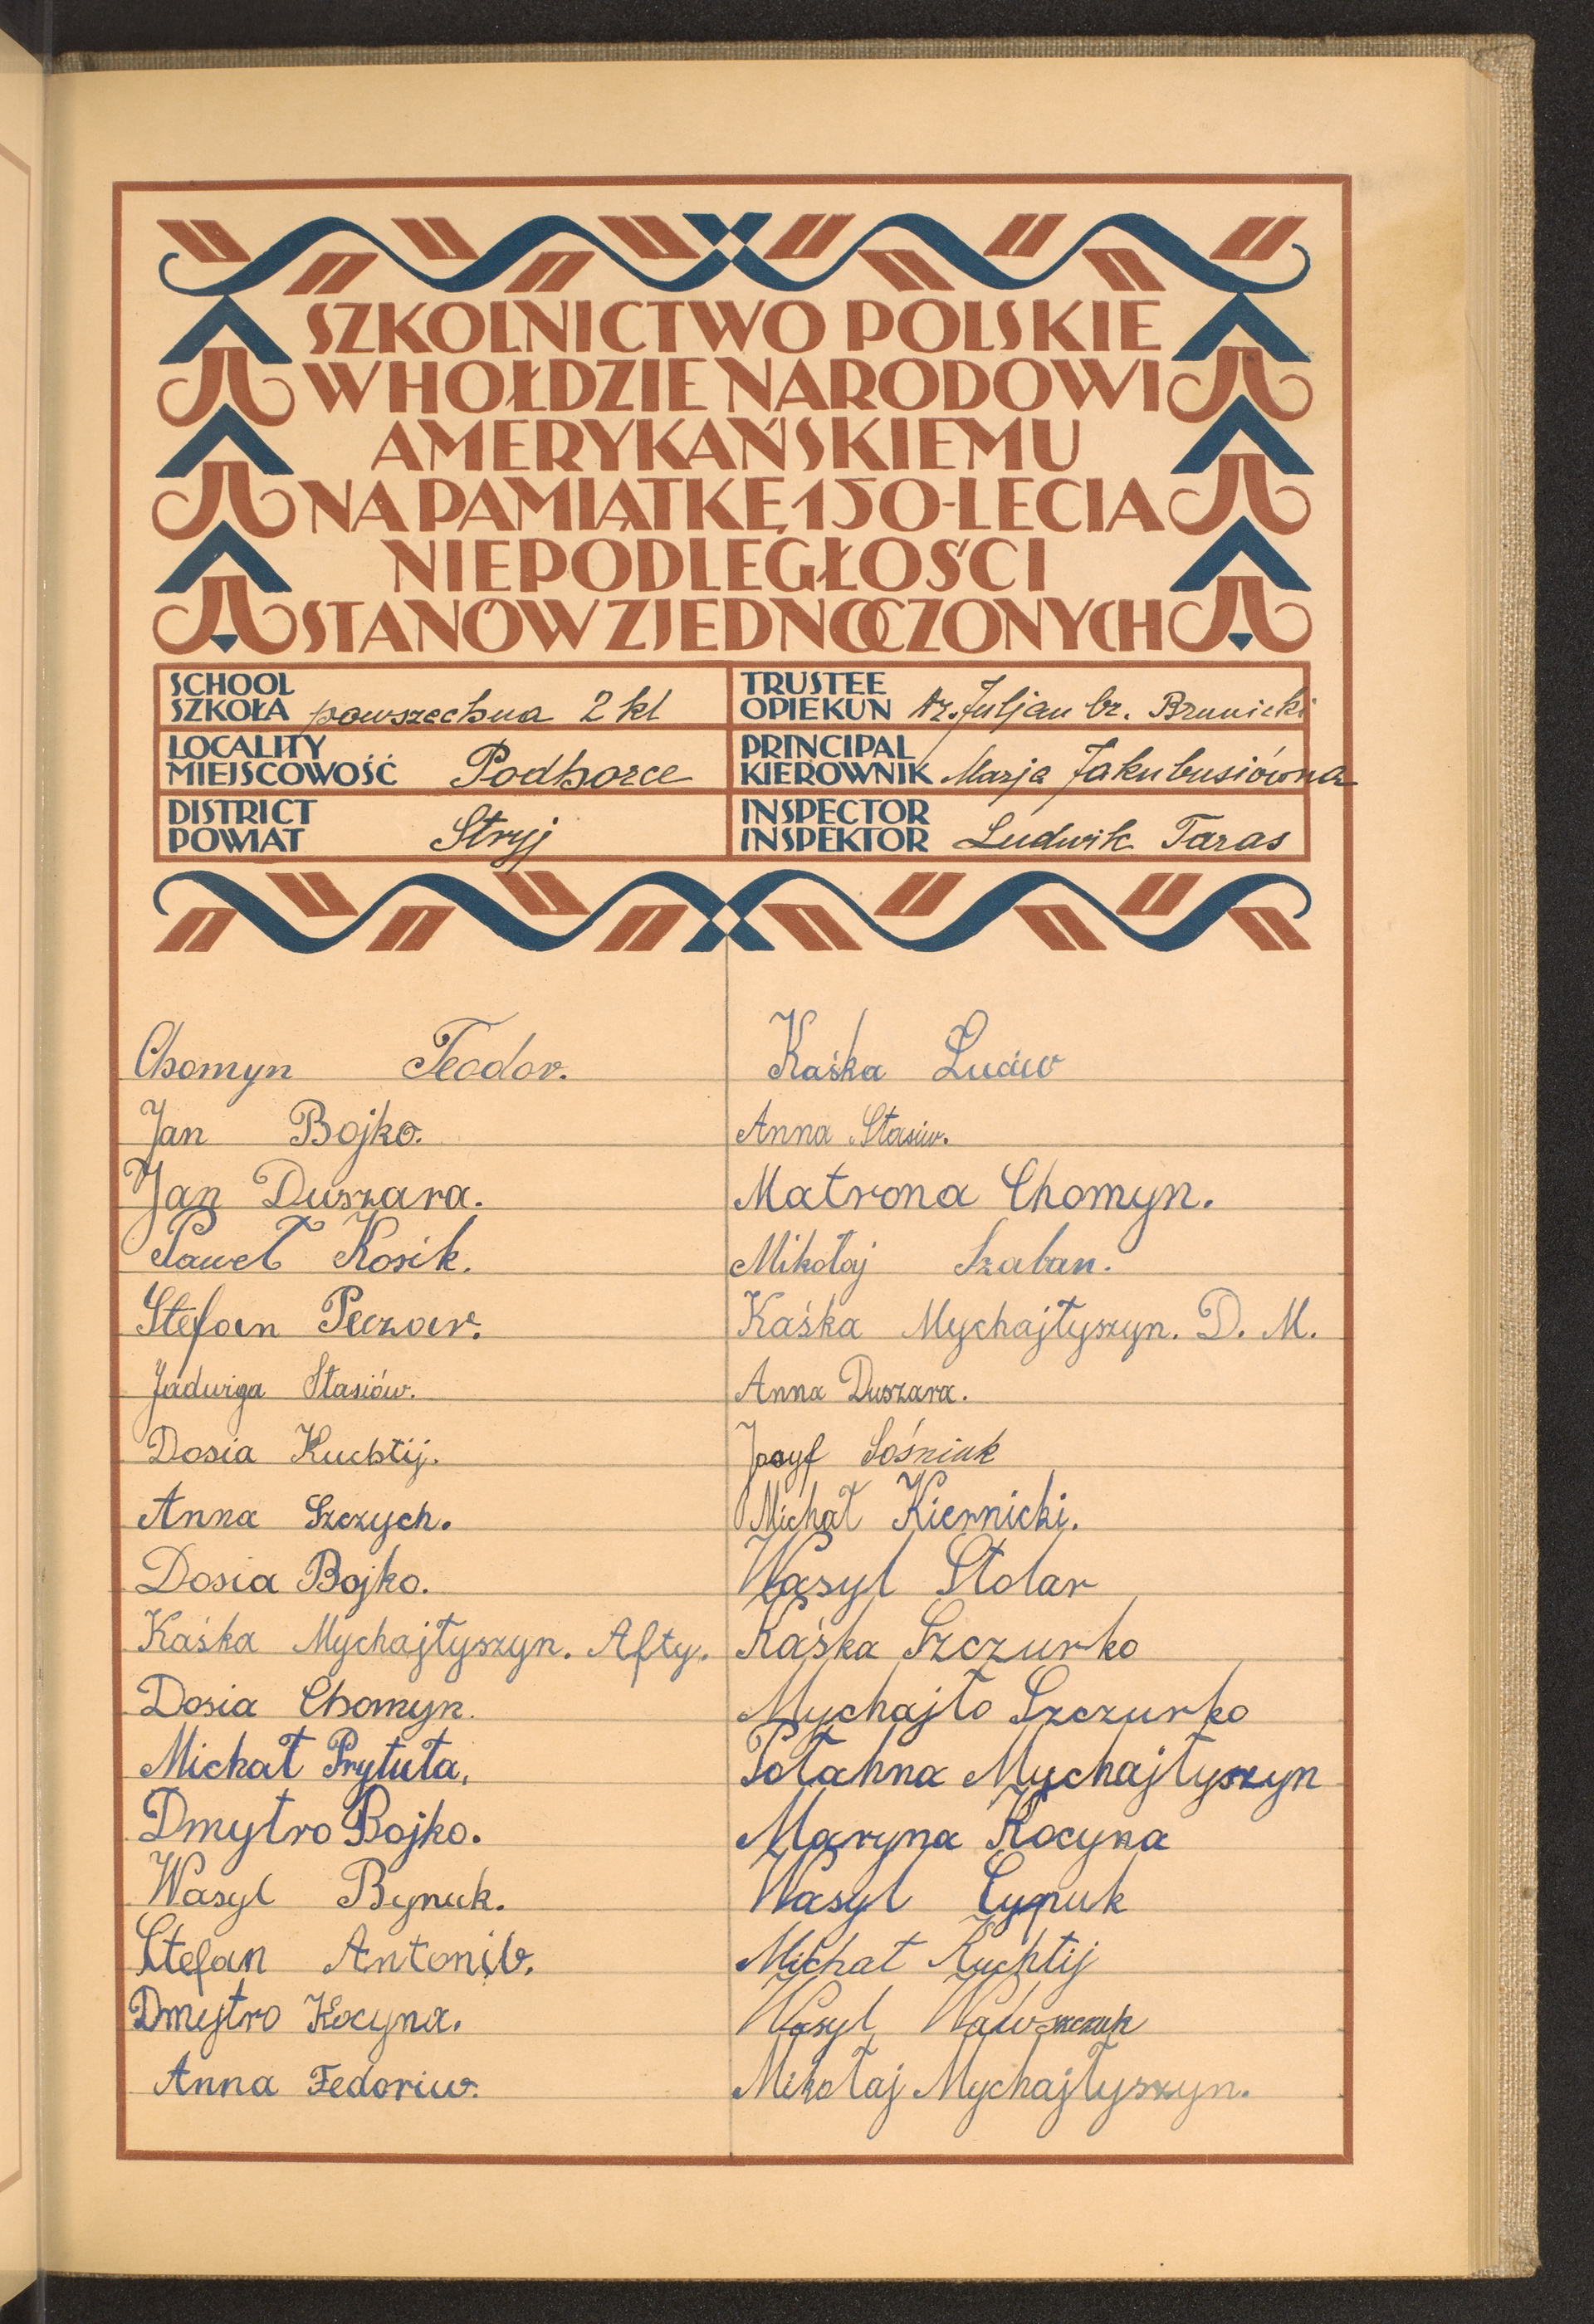 SZKOLNICTWO POLSKIE
W HOŁDZIE NARODOWI
AMERYKAŃSKIEMU
NA PAMIĄTKĘ 150-LECIA
NIEPODLEGŁOŚCI
STANÓW ZJEDNOCZONYCH
SCHOOL
SZKOŁA powszechna 2 kl
TRUSTEE
OPIEKUN Dr. Juljan br. Brunicki
LOCALITY
MIEJSCOWOŚĆ Podhorce
PRINCIPAL
KIEROWNIK Marja Jakubusiówna
DISTRICT
POWIAT Stryj
INSPECTOR
INSPEKTOR Ludwik Taras
Chomyn Teodor.
Jan Bojko.
Jan Duszara.
Paweł Kosik.
Stefan Peczar.
Jadwiga Stasiów.
Dosia Kuchtij.
Anna Szczych.
Dosia Bojko.
Kaśka Mychajłyszyn. Afty.
Dosia Chomyn.
Michał Prytuła.
Dmytro Bojko.
Wasyl Bynuk.
Stefan Antoniv.
Dmytro Kocyna.
Anna Fedoriw.
Kaśka
Anna Stasiw.
Matrona Chomyn.
Mikołaj Szaban.
Kaśka Mychajłyszyn. D. M.
Anna Duszara.
Josyf Sośniak
Michał Kiernicki.
Wasyl Stolar
Kaśka Szczurko
Mychajło Szczurko
Połahna Mychajłyszyn
Maryna Kocyna
Wasyl Cypuk
Michał Kuchtij
Wasyl
Mikołaj Mychajłyszyn.